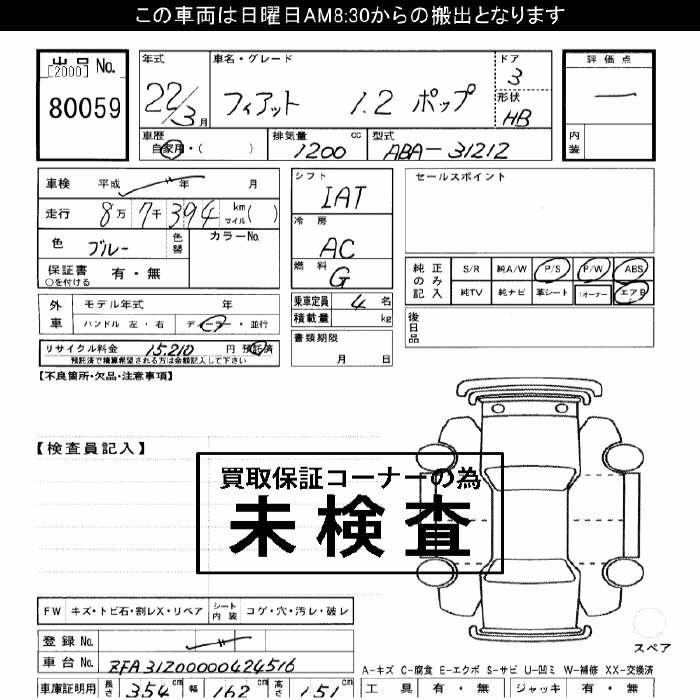 この車両は日曜日AM8:30からの搬出となります
出品 No.
[2000]
80059
年式
22/3月
車名・グレード
フィアット 1.2 ポップ
ドア
3
形状
HB
評価点
一
内装
車歴
自家用・( )
排気量 cc
1200
型式
ABA-31212
車検 平成 年 月
走行 8万 7千 394 km マイル( )
色 ブルー
色替
カラーNo.
保証書 有・無
○を付ける
外車
モデル年式 年
ハンドル 左・右 ディーラー・並行
リサイクル料金 15,210 円 預託済
預託済で積算希望される方は金額記入して下さい
シフト
IAT
冷房
AC
燃料
G
乗車定員 4 名
積載量 kg
書類期限
月 日
セールスポイント
純正のみ記入
S/R 純A/W P/S P/W ABS
純TV 純ナビ 革シート 1オーナー エアB
後日品
【不良箇所・欠品・注意事項】
【検査員記入】
買取保証コーナーの為
未検査
FW キズ・トビ石・割レX・リペア シート内装 コゲ・穴・汚レ・破レ
登録 No.
車台 No. ZFA31200000424516
車庫証明用 長さ 354 cm 幅 162 cm 高さ 151 cm
スペア
A-キズ C-腐食 E-エクボ S-サビ U-凹ミ W-補修 XX-交換済
工具 有・無 ジャッキ 有・無